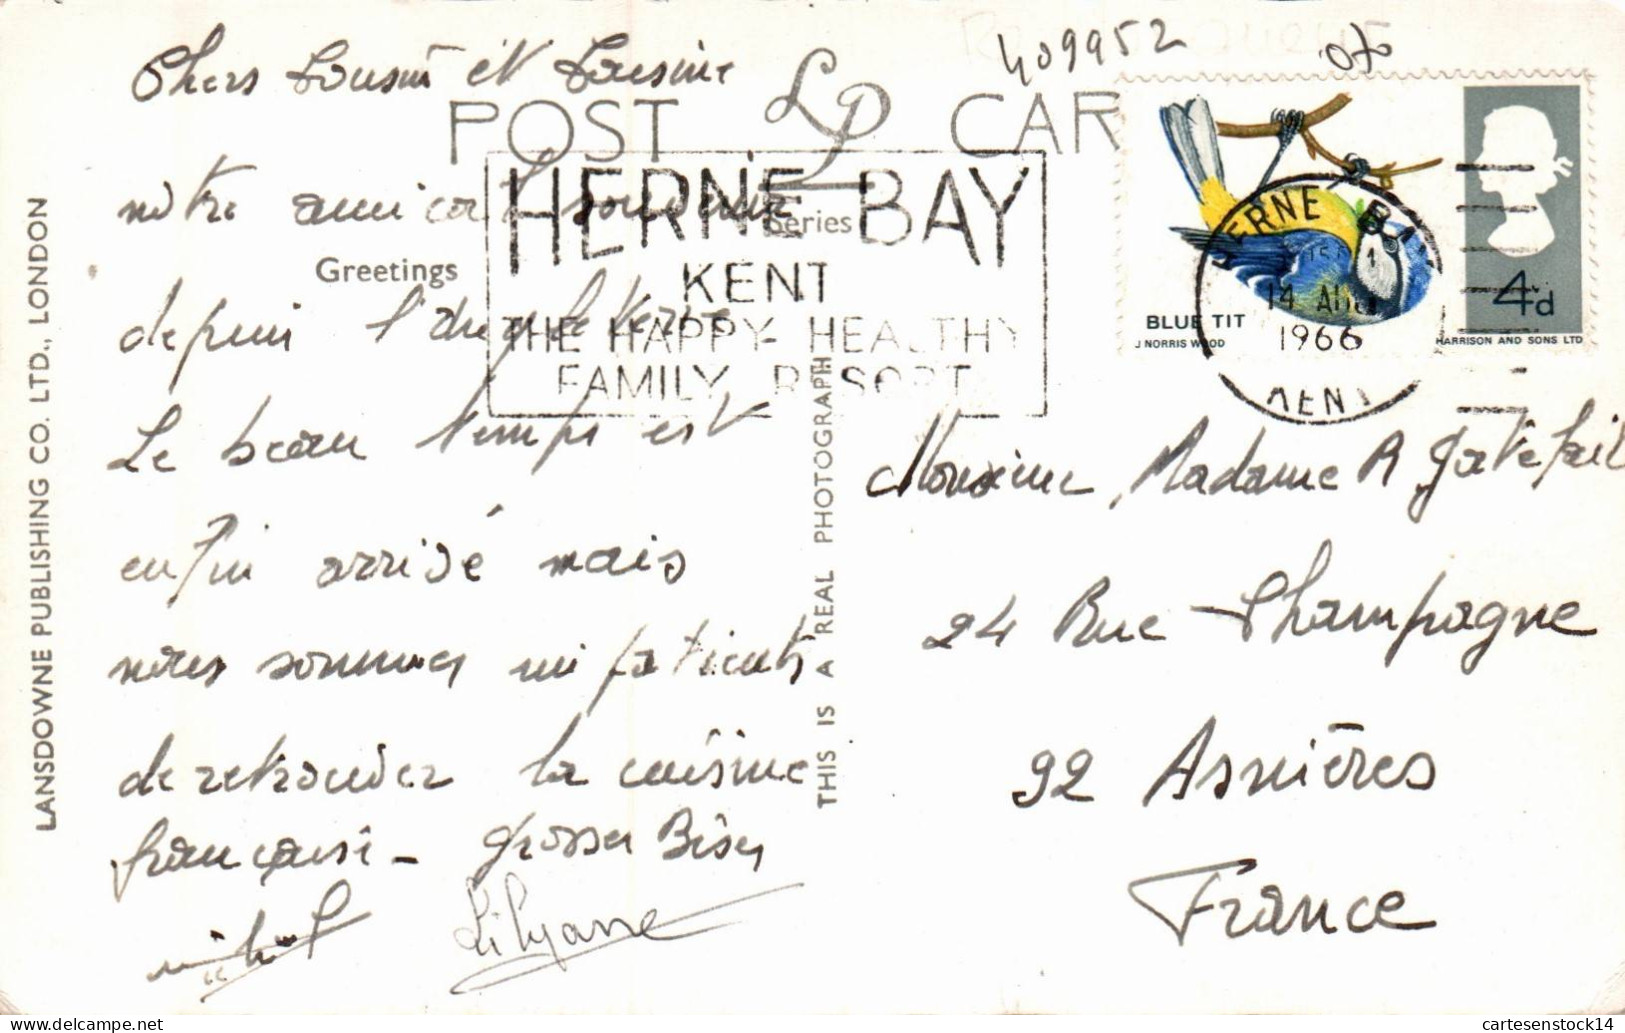 409952
Chers Cousin et Cousine
POST CAR
LP
Series
Greetings
HERNE BAY
KENT
THE HAPPY- HEALTHY
FAMILY RESORT
HERNE BAY
14 AUG
1966
KENT
BLUE TIT
J NORRIS WOOD
4d
HARRISON AND SONS LTD
notre amical souvenir
depuis l'
Le beau temps est
enfin arrivé mais
nous sommes impatients
de retrouver la cuisine
française - grosses Bises
Michel Lilyane
LANSDOWNE PUBLISHING CO. LTD., LONDON
THIS IS A REAL PHOTOGRAPH
Monsieur, Madame A Gatefait
24 Rue Champagne
92 Asnières
France
cartesenstock14